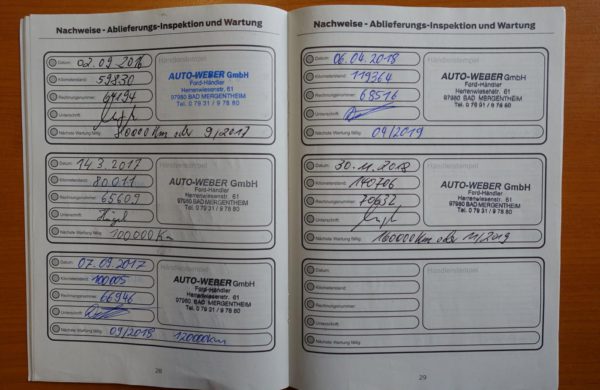 Nachweise - Ablieferungs-Inspektion und Wartung
Datum: 02.09.2016
Händlerstempel
Kilometerstand: 59830
Rechnungsnummer: 64194
Unterschrift:
AUTO-WEBER GmbH
Ford-Händler
Herrenwiesenstr. 61
97980 BAD MERGENTHEIM
Tel. 0 79 31 / 9 78 80
Nächste Wartung fällig: 80000 Km oder 9/2017
Datum: 14.3.2017
Händlerstempel
Kilometerstand: 80011
Rechnungsnummer: 65609
Unterschrift:
AUTO-WEBER GmbH
Ford-Händler
Herrenwiesenstr. 61
97980 BAD MERGENTHEIM
Tel. 0 79 31 / 9 78 80
Nächste Wartung fällig: 100.000 Km
Datum: 07.09.2017
Händlerstempel
Kilometerstand: 100005
Rechnungsnummer: 66946
Unterschrift:
AUTO-WEBER GmbH
Ford-Händler
Herrenwiesenstr. 61
97980 BAD MERGENTHEIM
Tel. 0 79 31 / 9 78 80
Nächste Wartung fällig: 09/2018 120000km
28
Nachweise - Ablieferungs-Inspektion und Wartung
Datum: 06.04.2018
Händlerstempel
Kilometerstand: 119364
Rechnungsnummer: 68516
Unterschrift:
AUTO-WEBER GmbH
Ford-Händler
Herrenwiesenstr. 61
97980 BAD MERGENTHEIM
Tel. 0 79 31 / 9 78 80
Nächste Wartung fällig: 04/2019
Datum: 30.11.2018
Händlerstempel
Kilometerstand: 140706
Rechnungsnummer: 70632
Unterschrift:
AUTO-WEBER GmbH
Ford-Händler
Herrenwiesenstr. 61
97980 BAD MERGENTHEIM
Tel. 0 79 31 / 9 78 80
Nächste Wartung fällig: 160000 Km oder 11/2019
Datum:
Händlerstempel
Kilometerstand:
Rechnungsnummer:
Unterschrift:
Nächste Wartung fällig:
29